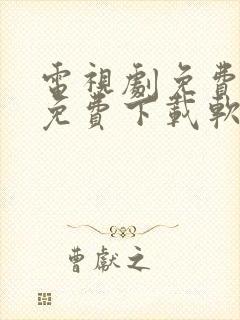 電視劇免費
免費下載軟
曹獻之